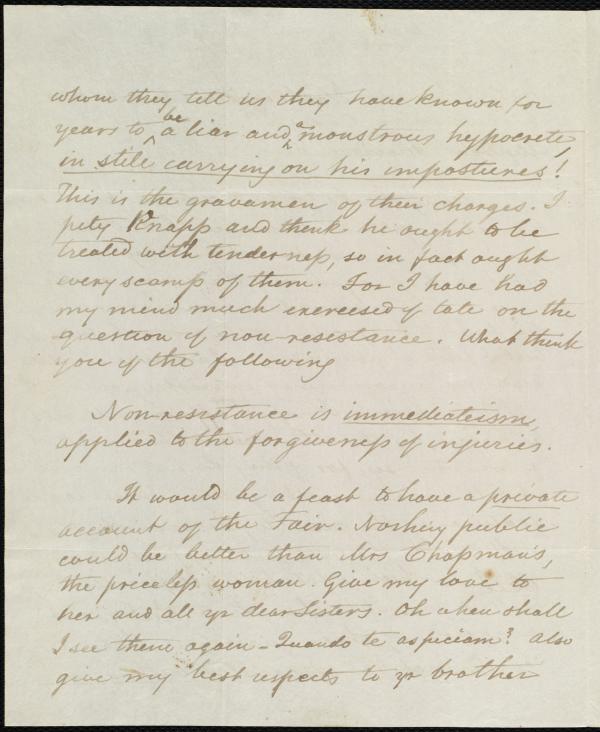 whom they tell us they have known for
years to be a liar and a monstrous hypocrete,
in stile carrying on his impostures!
This is the gravamen of their charges. I
pity Knapp and think he ought to be
treated with tenderness, so in fact ought
every scamp of them. For I have had
my mind much exercised of late on the
question of non-resistance. What think
you of the following
Non-resistance is immediateism,
applied to the forgiveness of injuries.
It would be a feast to have a private
account of the Fair. Nothing public
could be better than Mrs Chapman's,
the priceless woman. Give my love to
her and all yr dear Sisters. Oh when shall
I see them again - Quando te aspiciam? Also
give my best respects to yr brother